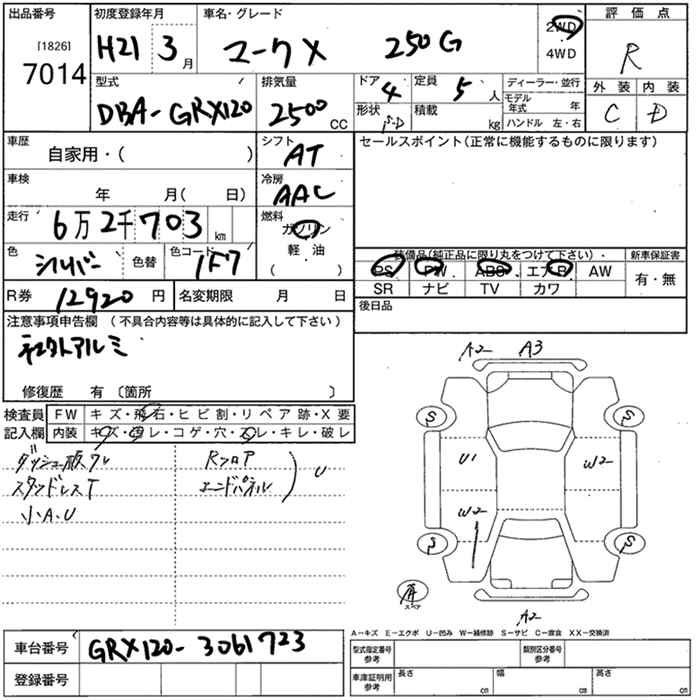 出品番号 初度登録年月 車名・グレード 評価点
[1826] 7014 H21 3月 マークX 250G 2WD 4WD R
型式 排気量 ドア 4 定員 5人 ディーラー・並行 外装 内装
DBA-GRX120 2500 CC 形状 積載 kg モデル年式 年 ハンドル 左・右 C D
車歴 自家用・( ) シフト AT セールスポイント(正常に機能するものに限ります)
車検 年 月( 日) 冷房 AAC
走行 6万2千703 km 燃料 ガソリン 軽油 ( )
色 シルバー 色替 色コード 1F7
装備品(純正品に限り丸をつけて下さい)・ 新車保証書
PS PW ABS エアB AW 有・無
SR ナビ TV カワ
R券 12920円 名変期限 月 日 後日品
注意事項申告欄 (不具合内容等は具体的に記入して下さい)
アルミ
修復歴 有 〔箇所 〕
検査員記入欄 FW キズ・飛石・ヒビ割・リペア跡・X要
内装 キズ・ヨゴレ・コゲ・穴・スレ・キレ・破レ
ダッシュ Rフロア
スタッドレスT エンドパネル U
小A.U
A2 A3
S S
U1 W2
W2
S S
スペア
A2
A−キズ E−エクボ U−凹み W−補修跡 S−サビ C−腐食 XX−交換済
車台番号 GRX120-3061723
登録番号
型式指定番号 参考 類別区分番号 参考
車庫証明用 参考 長さ cm 幅 cm 高さ cm